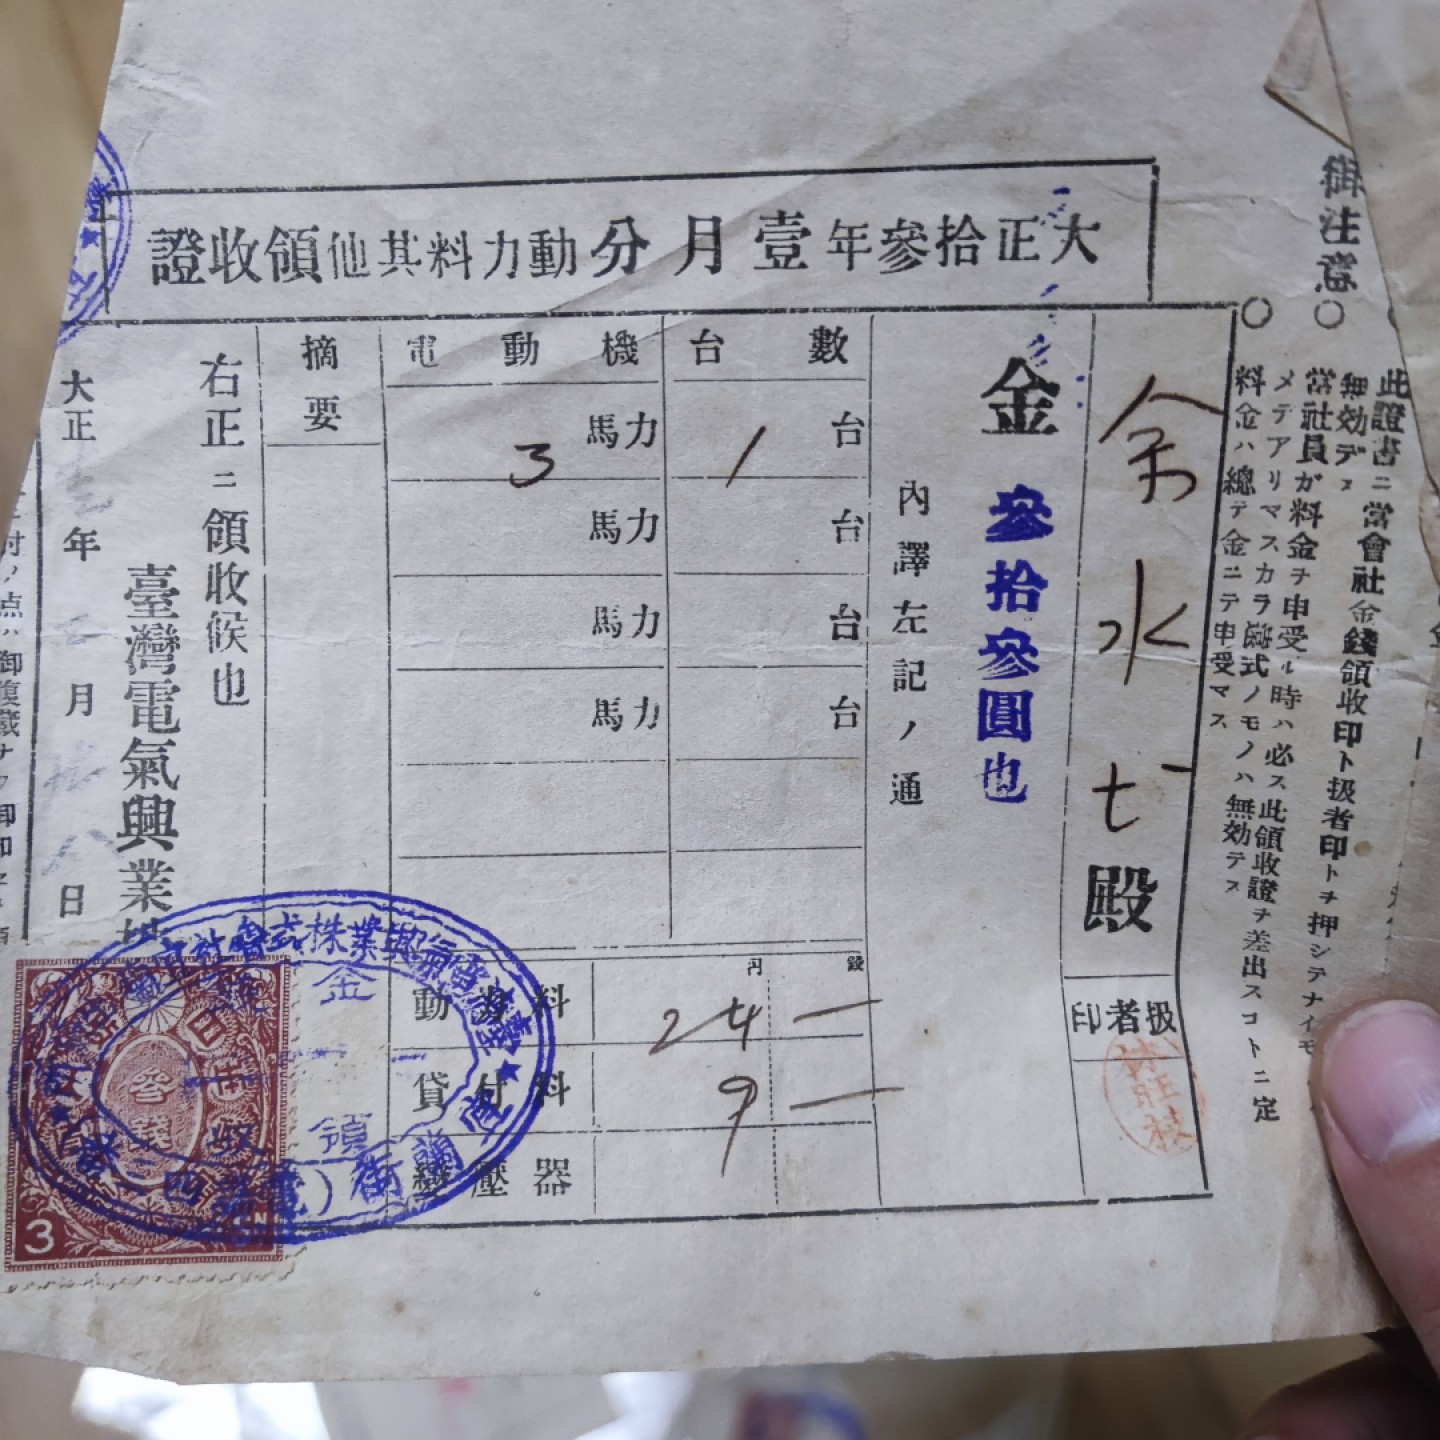 御注意
此證書ニ當會社金錢領收印ト扱者印トヲ押シテナイモ
無効デス
當社員ガ料金ヲ申受ル時ハ必ス此領收證ヲ差出スコトニ定
メテアリマスカラ式ノモノハ無効デス
料金ハ總テ金ニテ申受マス
大正拾參年壹月分動力料其他領收證
余水七殿
扱者印
金參拾參圓也
內譯左記ノ通
電動機 台數
3馬力 1台
馬力 台
馬力 台
馬力 台
円 錢
動力料 24 —
貸付料 9 —
變壓器
摘要
右正ニ領收候也
臺灣電氣興業
大正 年 月 日
3 SN
參錢